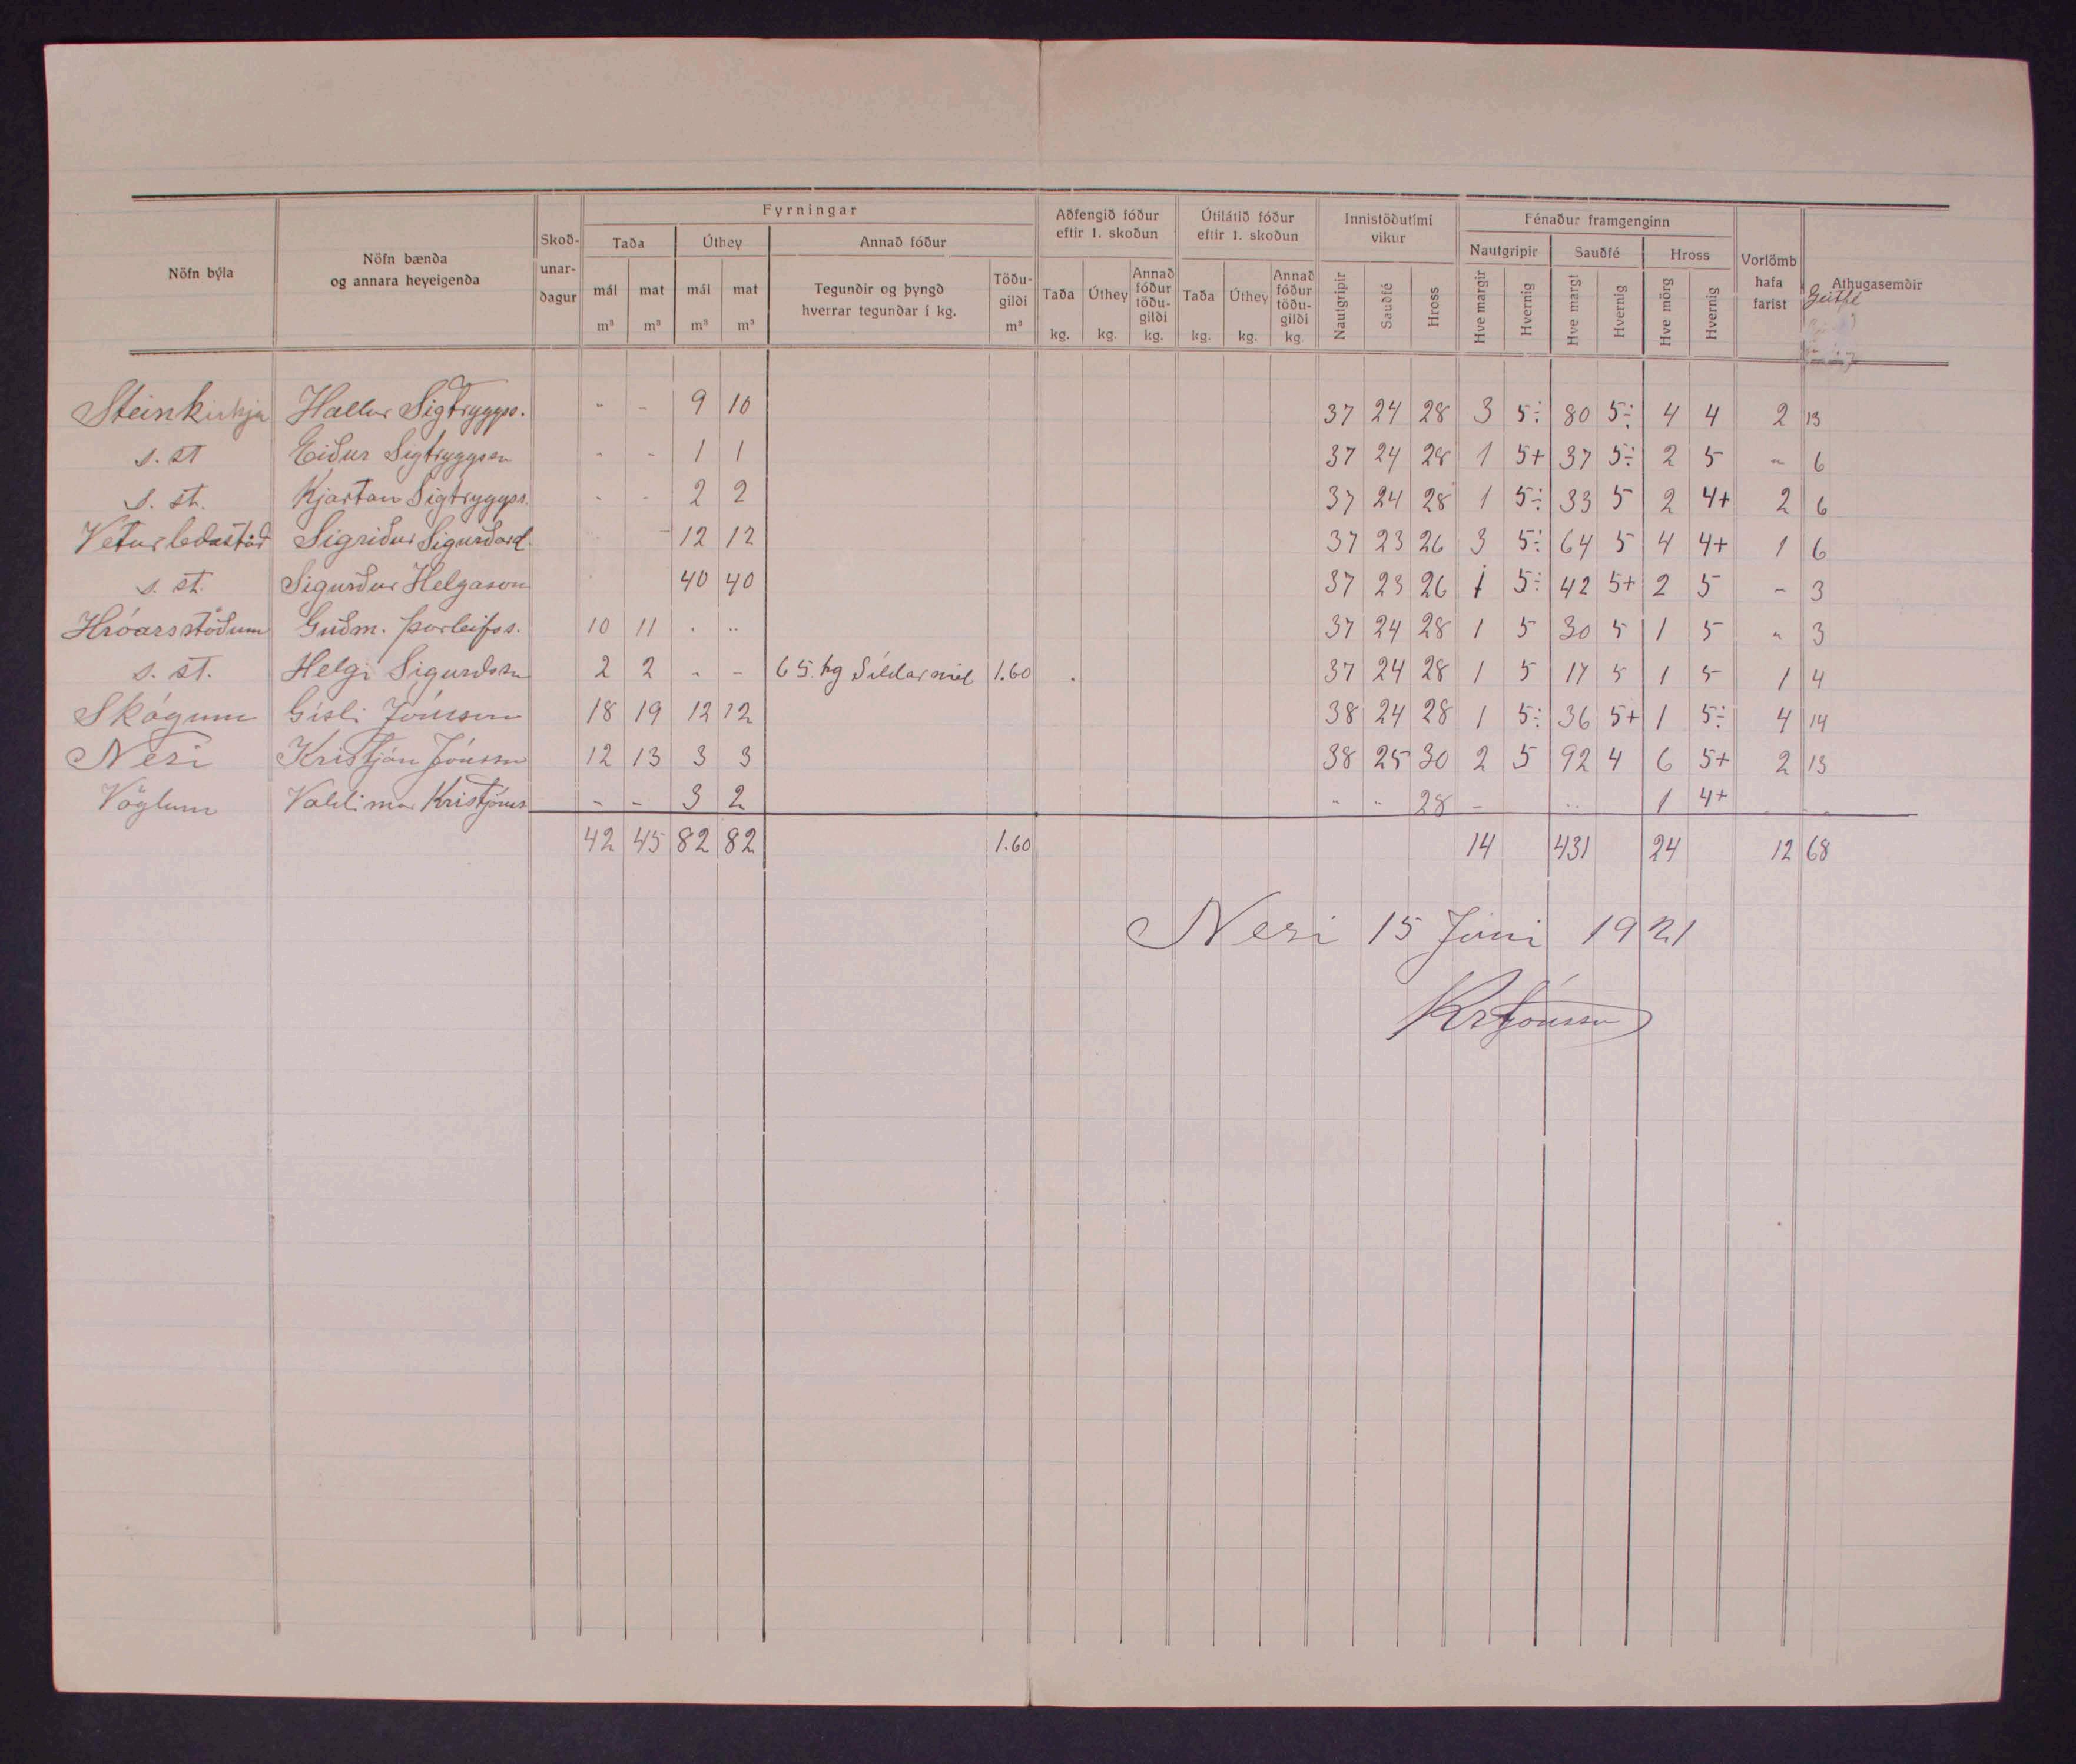 Nöfn býla | Nöfn bænda og annara heyeigenda | Skoð-unar-dagur | Fyrningar | Aðfengið fóður eftir 1. skoðun | Útilátið fóður eftir 1. skoðun | Innistöðutími vikur | Fénaður framgenginn | Vorlömb hafa farist | Athugasemdir
Taða | Úthey | Annað fóður | Nautgripir | Sauðfé | Hross
mál m³ | mat m³ | mál m³ | mat m³ | Tegundir og þyngd hverrar tegundar í kg. | Töðu-gildi m³ | Taða kg. | Úthey kg. | Annað fóður töðu-gildi kg. | Taða kg. | Úthey kg. | Annað fóður töðu-gildi kg. | Nautgripir | Sauðfé | Hross | Hve margir | Hvernig | Hve margt | Hvernig | Hve mörg | Hvernig | Geitfé
Steinkirkja Hallur Sigtryggss. - - 9 10 37 24 28 3 5÷ 80 5÷ 4 4 2 13
s. st Eiður Sigtryggssn - - 1 1 37 24 28 1 5+ 37 5÷ 2 5 - 6
s. st. Kjartan Sigtryggss. - - 2 2 37 24 28 1 5÷ 33 5 2 4+ 2 6
Veturleðastöð Sigríður Sigurðard. - 12 12 37 23 26 3 5÷ 64 5 4 4+ 1 6
s. st. Sigurður Helgason 40 40 37 23 26 1 5÷ 42 5+ 2 5 - 3
Hróarsstöðum Guðm. Þorleifss. 10 11 - - 37 24 28 1 5 30 5 1 5 - 3
s. st. Helgi Sigurðssn 2 2 - - 65 kg Síldarmél 1.60 37 24 28 1 5 17 5 1 5 1 4
Skógum Gísli Jónsson 18 19 12 12 38 24 28 1 5÷ 36 5+ 1 5÷ 4 14
Nesi Kristján Jónssn 12 13 3 3 38 25 30 2 5 92 4 6 5+ 2 13
Vöglum Valdimar Kristjánss - - 3 2 - - 28 - - 1 4+
42 45 82 82 1.60 14 431 24 12 68
Nesi 15 Júni 1921
KrJónssn